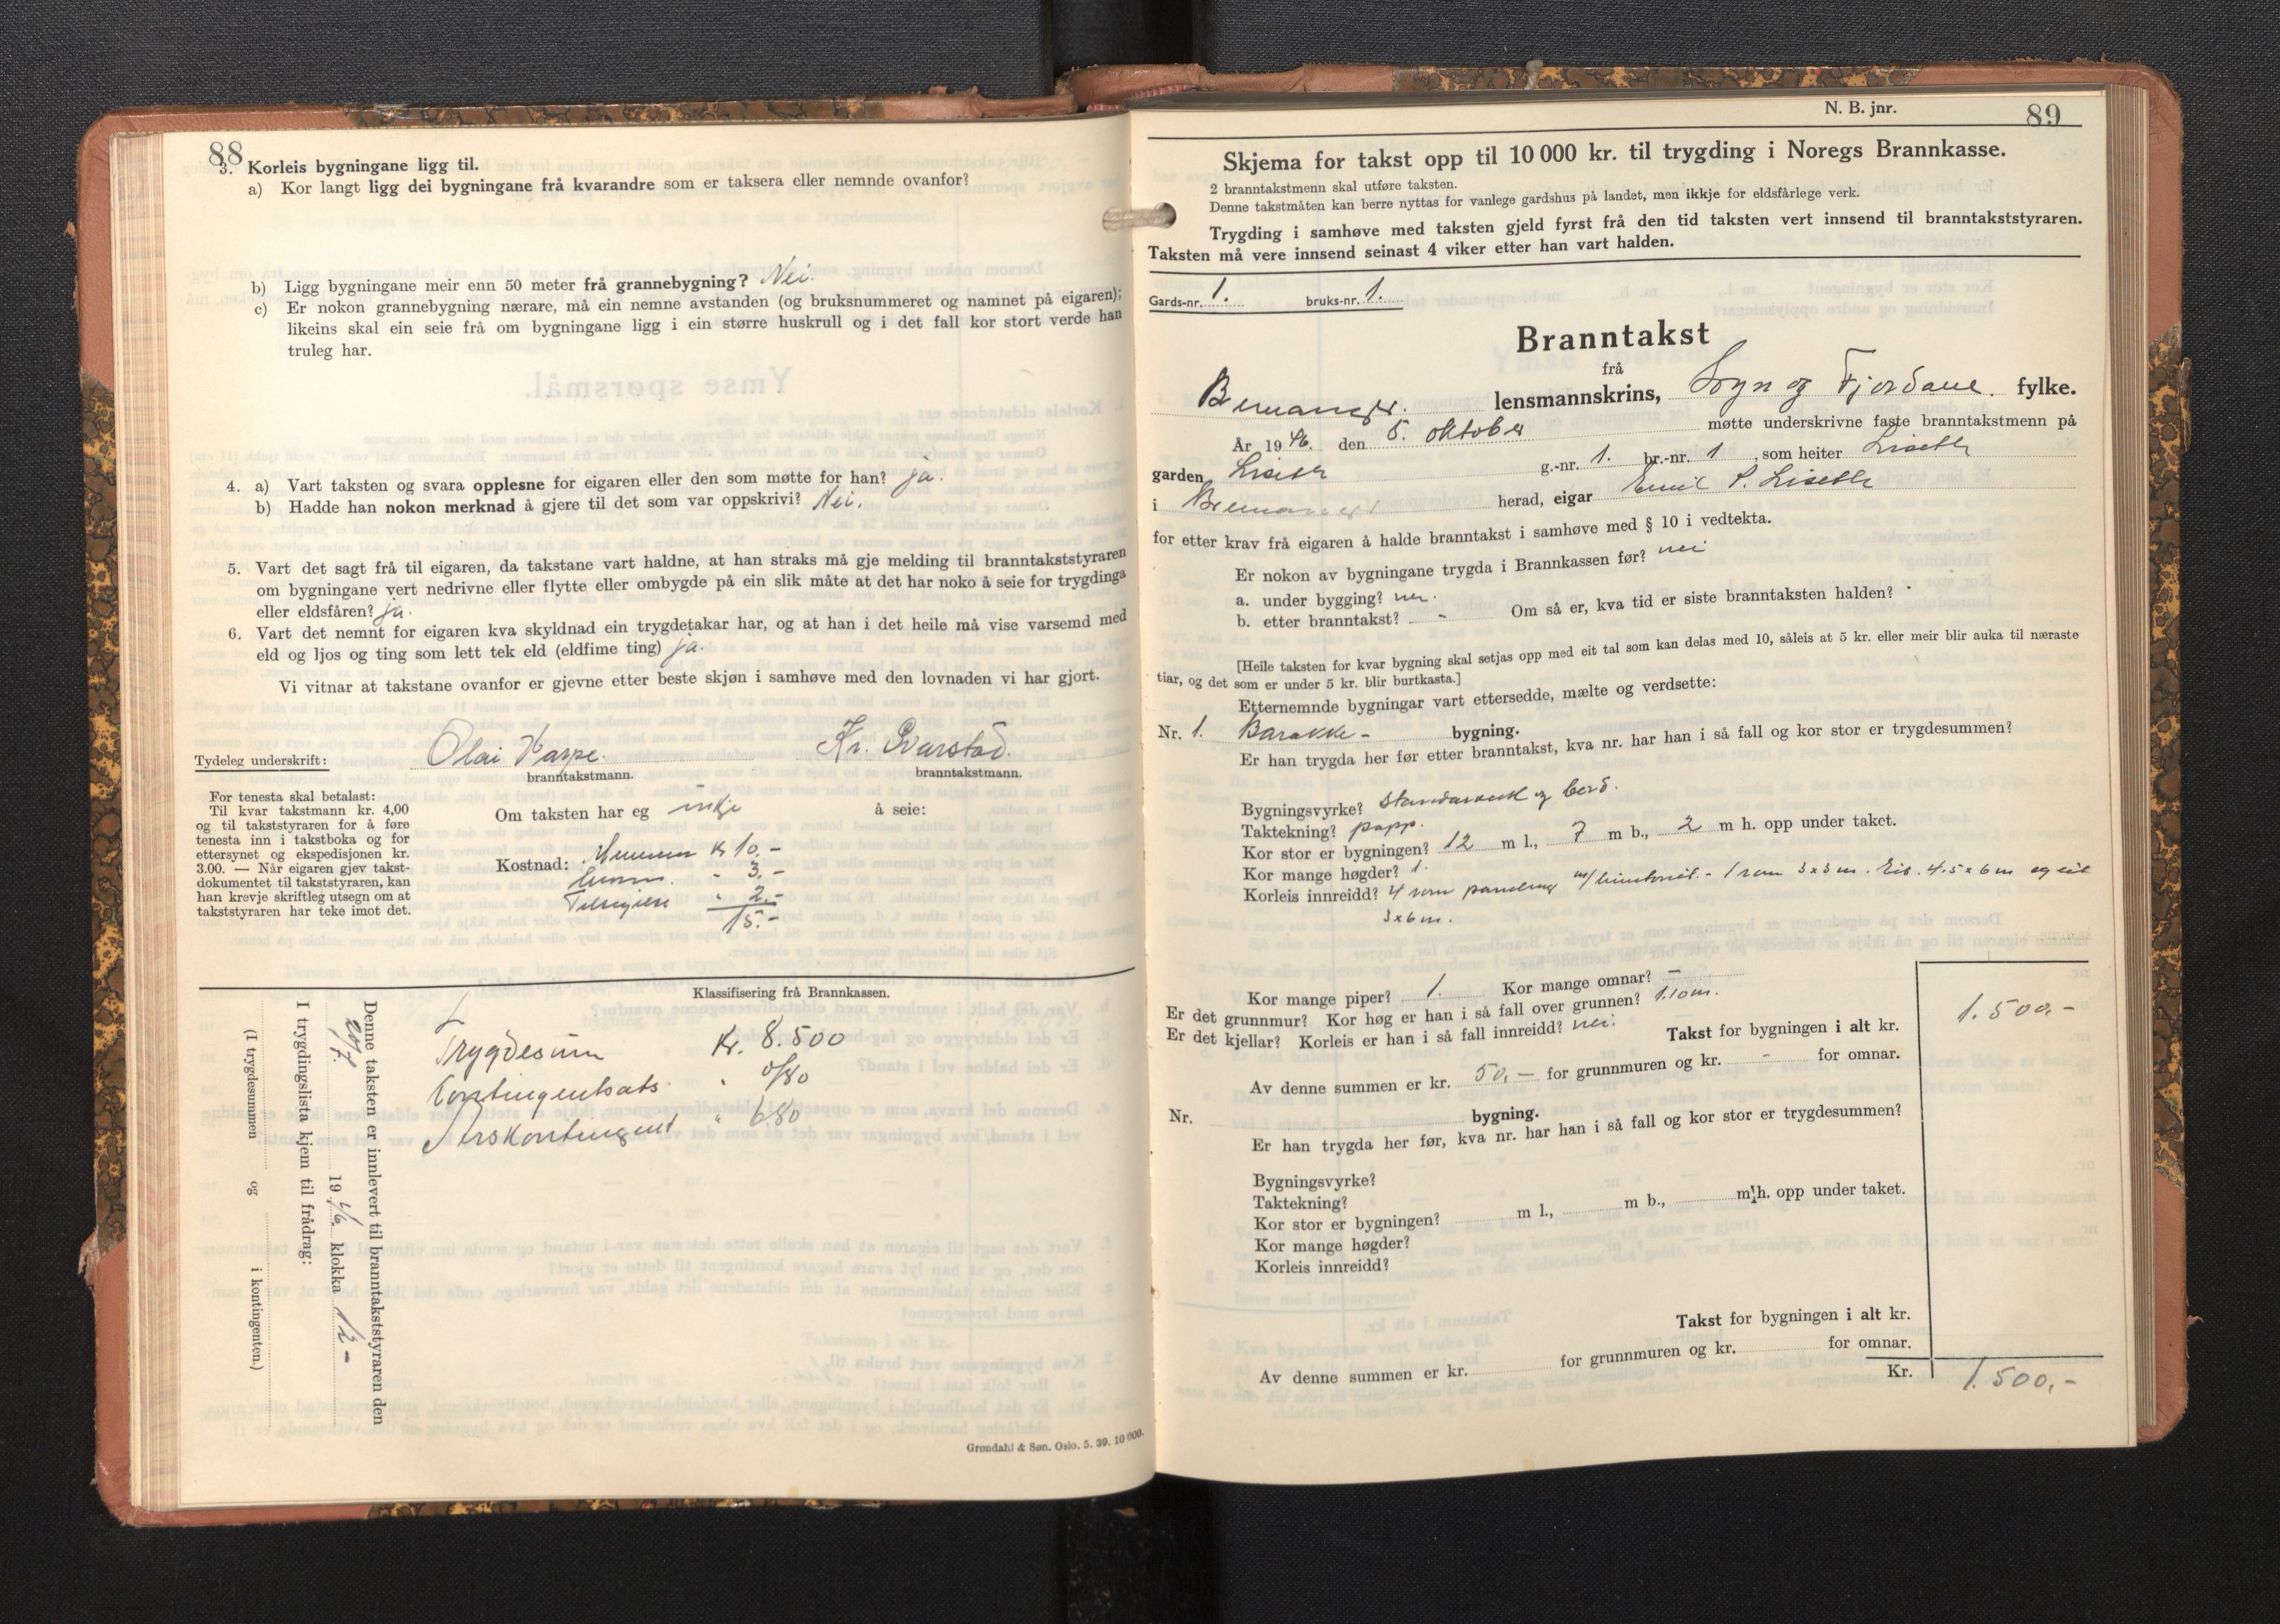 88
3. Korleis bygningane ligg til.
a) Kor langt ligg dei bygningane frå kvarandre som er taksera eller nemnde ovanfor?
b) Ligg bygningane meir enn 50 meter frå grannebygning? Nei.
c) Er nokon grannebygning nærare, må ein nemne avstanden (og bruksnummeret og namnet på eigaren);
likeins skal ein seie frå om bygningane ligg i ein større huskrull og i det fall kor stort verde han
truleg har.
4. a) Vart taksten og svara opplesne for eigaren eller den som møtte for han? ja.
b) Hadde han nokon merknad å gjere til det som var oppskrivi? Nei.
5. Vart det sagt frå til eigaren, da takstane vart haldne, at han straks må gje melding til branntakststyraren
om bygningane vert nedrivne eller flytte eller ombygde på ein slik måte at det har noko å seie for trygdinga
eller eldsfåren? ja.
6. Vart det nemnt for eigaren kva skyldnad ein trygdetakar har, og at han i det heile må vise varsemd med
eld og ljos og ting som lett tek eld (eldfime ting) ja.
Vi vitnar at takstane ovanfor er gjevne etter beste skjøn i samhøve med den lovnaden vi har gjort.
Tydeleg underskrift: Olai Varpe. Kr. Svarstad.
branntakstmann. branntakstmann.
For tenesta skal betalast:
Til kvar takstmann kr. 4,00
og til takststyraren for å føre
tenesta inn i takstboka og for
ettersynet og ekspedisjonen kr.
3.00. — Når eigaren gjev takst-
dokumentet til takststyraren, kan
han krevje skriftleg utsegn om at
takststyraren har teke imot det.
Om taksten har eg inkje å seie:
Kostnad: Mennene Kr 10.-
" 3.-
" 2.-
15.-
Klassifisering frå Brannkassen.
Trygdesum Kr. 8.500
Kontingentsats " 0/80
Årskontingent " 6.80
Denne taksten er innlevert til branntakststyraren den
20/7. 1946. klokka 12-
I trygdingslista kjem til frådrag:
(I trygdesummen og i kontingenten.)
Grøndahl & Søn. Oslo. 5. 39. 10 000.
N. B. jnr. 89
Skjema for takst opp til 10 000 kr. til trygding i Noregs Brannkasse.
2 branntakstmenn skal utføre taksten.
Denne takstmåten kan berre nyttas for vanlege gardshus på landet, men ikkje for eldsfårlege verk.
Trygding i samhøve med taksten gjeld fyrst frå den tid taksten vert innsend til branntakststyraren.
Taksten må vere innsend seinast 4 viker etter han vart halden.
Gards-nr. 1. bruks-nr. 1.
Branntakst
frå
Bremanger. lensmannskrins, Sogn og Fjordane. fylke.
År 1946. den 5. oktober møtte underskrivne faste branntakstmenn på
garden Liseth g.-nr. 1. br.-nr. 1, som heiter Liseth
i Bremanger herad, eigar Emil P. Liseth
for etter krav frå eigaren å halde branntakst i samhøve med § 10 i vedtekta.
Er nokon av bygningane trygda i Brannkassen før? nei
a. under bygging? nei.
b. etter branntakst? - Om så er, kva tid er siste branntaksten halden?
[Heile taksten for kvar bygning skal setjas opp med eit tal som kan delas med 10, såleis at 5 kr. eller meir blir auka til næraste
tiar, og det som er under 5 kr. blir burtkasta.]
Etternemnde bygningar vart ettersedde, mælte og verdsette:
Nr. 1. Barakke- bygning.
Er han trygda her før etter branntakst, kva nr. har han i så fall og kor stor er trygdesummen?
Bygningsvyrke? Standarverk og bord.
Taktekning? papp.
Kor stor er bygningen? 12 m l., 7 m b., 2 m h. opp under taket.
Kor mange høgder? 1.
Korleis innreidd? 4 rom paneling m/ - 1 rom 3x3 m. Eit. 4.5x6 m og eit
3x6 m.
Kor mange piper? 1. Kor mange omnar? -
Er det grunnmur? Kor høg er han i så fall over grunnen? 1.10 m.
Er det kjellar? Korleis er han i så fall innreidd? nei.
Takst for bygningen i alt kr. 1.500,-
Av denne summen er kr. 50,- for grunnmuren og kr. - for omnar.
Nr. bygning.
Er han trygda her før, kva nr. har han i så fall og kor stor er trygdesummen?
Bygningsvyrke?
Taktekning?
Kor stor er bygningen? m l., m b., m h. opp under taket.
Kor mange høgder?
Korleis innreidd?
Takst for bygningen i alt kr.
Av denne summen er kr. for grunnmuren og kr. for omnar.
Kr. 1.500,-